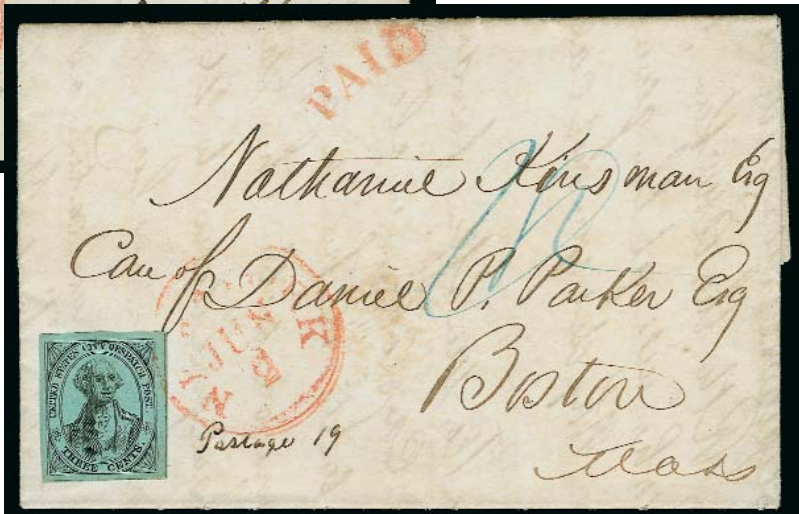 PAID
Nathaniel Kinsman Esq
Care of Daniel P. Parker Esq
Boston
Mass
UNITED STATES CITY DESPATCH POST.
THREE CENTS.
Postage 19